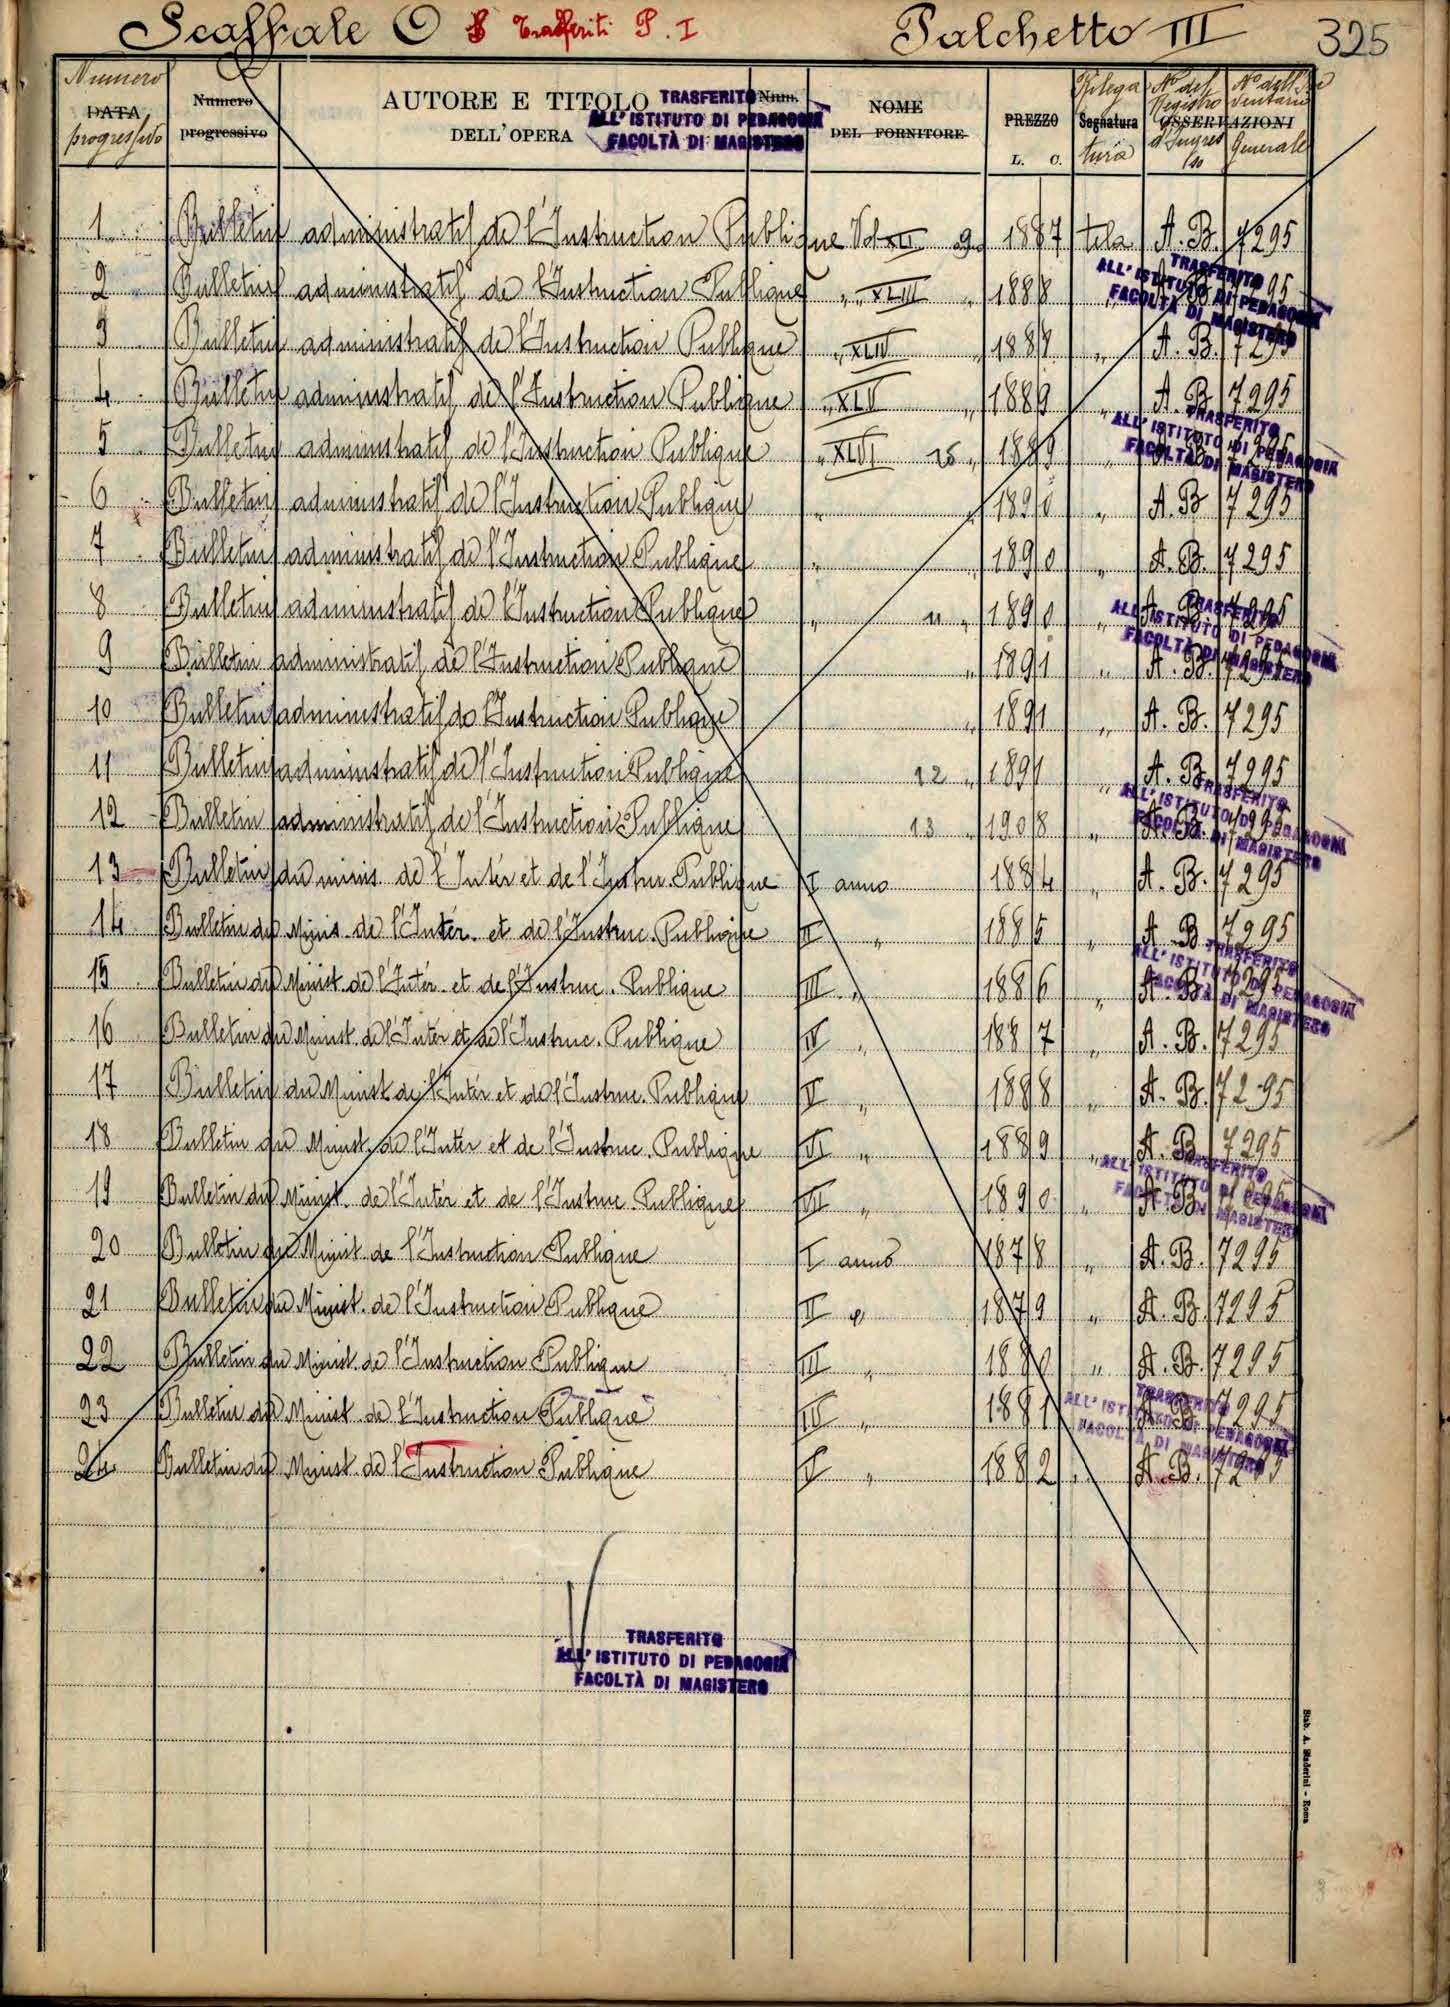 Scaffale O Trasferiti P. I Palchetto III 325
Numero DATA progressivo
Numero progressivo
AUTORE E TITOLO DELL'OPERA
TRASFERITO
ALL'ISTITUTO DI PEDAGOGIA
FACOLTÀ DI MAGISTERO
Num.
NOME DEL FORNITORE
PREZZO L. C.
Rilegatura Segnatura
N° del Registro d'Ingresso
OSSERVAZIONI
N° dell'Inventario Generale
1 Bulletin administratif de l'Instruction Publique Vol XLII 9 1887 tela A. B. 7295
TRASFERITO
ALL'ISTITUTO DI PEDAGOGIA
FACOLTÀ DI MAGISTERO
2 Bulletin administratif de l'Instruction Publique " " XLIII " 1888 " A. B. 7295
3 Bulletin administratif de l'Instruction Publique " XLIV " 1888 " A. B. 7295
4 Bulletin administratif de l'Instruction Publique " XLV " 1889 " A. B. 7295
TRASFERITO
ALL'ISTITUTO DI PEDAGOGIA
FACOLTÀ DI MAGISTERO
5 Bulletin administratif de l'Instruction Publique " XLVI " 1889 " A. B. 7295
6 Bulletin administratif de l'Instruction Publique " " 1890 " A. B. 7295
7 Bulletin administratif de l'Instruction Publique " " 1890 " A. B. 7295
8 Bulletin administratif de l'Instruction Publique " 11 " 1890 " A. B. 7295
TRASFERITO
ALL'ISTITUTO DI PEDAGOGIA
FACOLTÀ DI MAGISTERO
9 Bulletin administratif de l'Instruction Publique " 1891 " A. B. 7295
10 Bulletin administratif de l'Instruction Publique " 1891 " A. B. 7295
11 Bulletin administratif de l'Instruction Publique 12 " 1891 " A. B. 7295
TRASFERITO
ALL'ISTITUTO DI PEDAGOGIA
FACOLTÀ DI MAGISTERO
12 Bulletin administratif de l'Instruction Publique 13 " 1908 " A. B. 7295
13 Bulletin du minis. de l'Intér et de l'Instru. Publique I anno 1884 " A. B. 7295
14 Bulletin du Minis. de l'Intér. et de l'Instruc. Publique II " 1885 " A. B. 7295
TRASFERITO
ALL'ISTITUTO DI PEDAGOGIA
FACOLTÀ DI MAGISTERO
15 Bulletin du Minist. de l'Intér. et de l'Instruc. Publique III " 1886 " A. B. 7295
16 Bulletin du Minist. de l'Intér et de l'Instruc. Publique IV " 1887 " A. B. 7295
17 Bulletin du Minist de l'Intér et de l'Instruc. Publique V " 1888 " A. B. 7295
18 Bulletin du Minist. de l'Intér et de l'Instruc. Publique VI " 1889 " A. B. 7295
TRASFERITO
ALL'ISTITUTO DI PEDAGOGIA
FACOLTÀ DI MAGISTERO
19 Bulletin du Minist. de l'Intér et de l'Instruc. Publique VII " 1890 " A. B. 7295
20 Bulletin du Minist. de l'Instruction Publique I anno 1878 " A. B. 7295
21 Bulletin du Minist. de l'Instruction Publique II " 1879 " A. B. 7295
22 Bulletin du Minist. de l'Instruction Publique III " 1880 " A. B. 7295
23 Bulletin du Minist. de l'Instruction Publique IV " 1881 " A. B. 7295
TRASFERITO
ALL'ISTITUTO DI PEDAGOGIA
FACOLTÀ DI MAGISTERO
24 Bulletin du Minist. de l'Instruction Publique V " 1882 " A. B. 7295
TRASFERITO
ALL'ISTITUTO DI PEDAGOGIA
FACOLTÀ DI MAGISTERO
Stab. A. Staderini - Roma